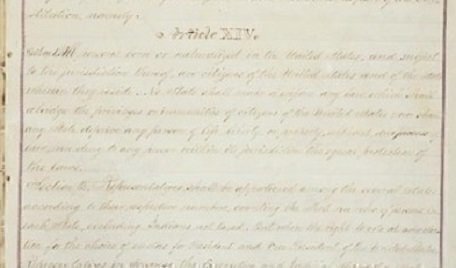 stitution, namely:
Article XIV.
Section 1. All persons born or naturalized in the United States, and subject
to the jurisdiction thereof, are citizens of the United States and of the State
wherein they reside. No State shall make or enforce any law which shall
abridge the privileges or immunities of citizens of the United States; nor shall
any State deprive any person of life, liberty, or property, without due process of
law; nor deny to any person within its jurisdiction the equal protection of
the laws.
Section 2. Representatives shall be apportioned among the several States
according to their respective numbers, counting the whole number of persons in
each State, excluding Indians not taxed. But when the right to vote at any elec-
tion for the choice of electors for President and Vice President of the United States,
Representatives in Congress, the Executive and Judicial